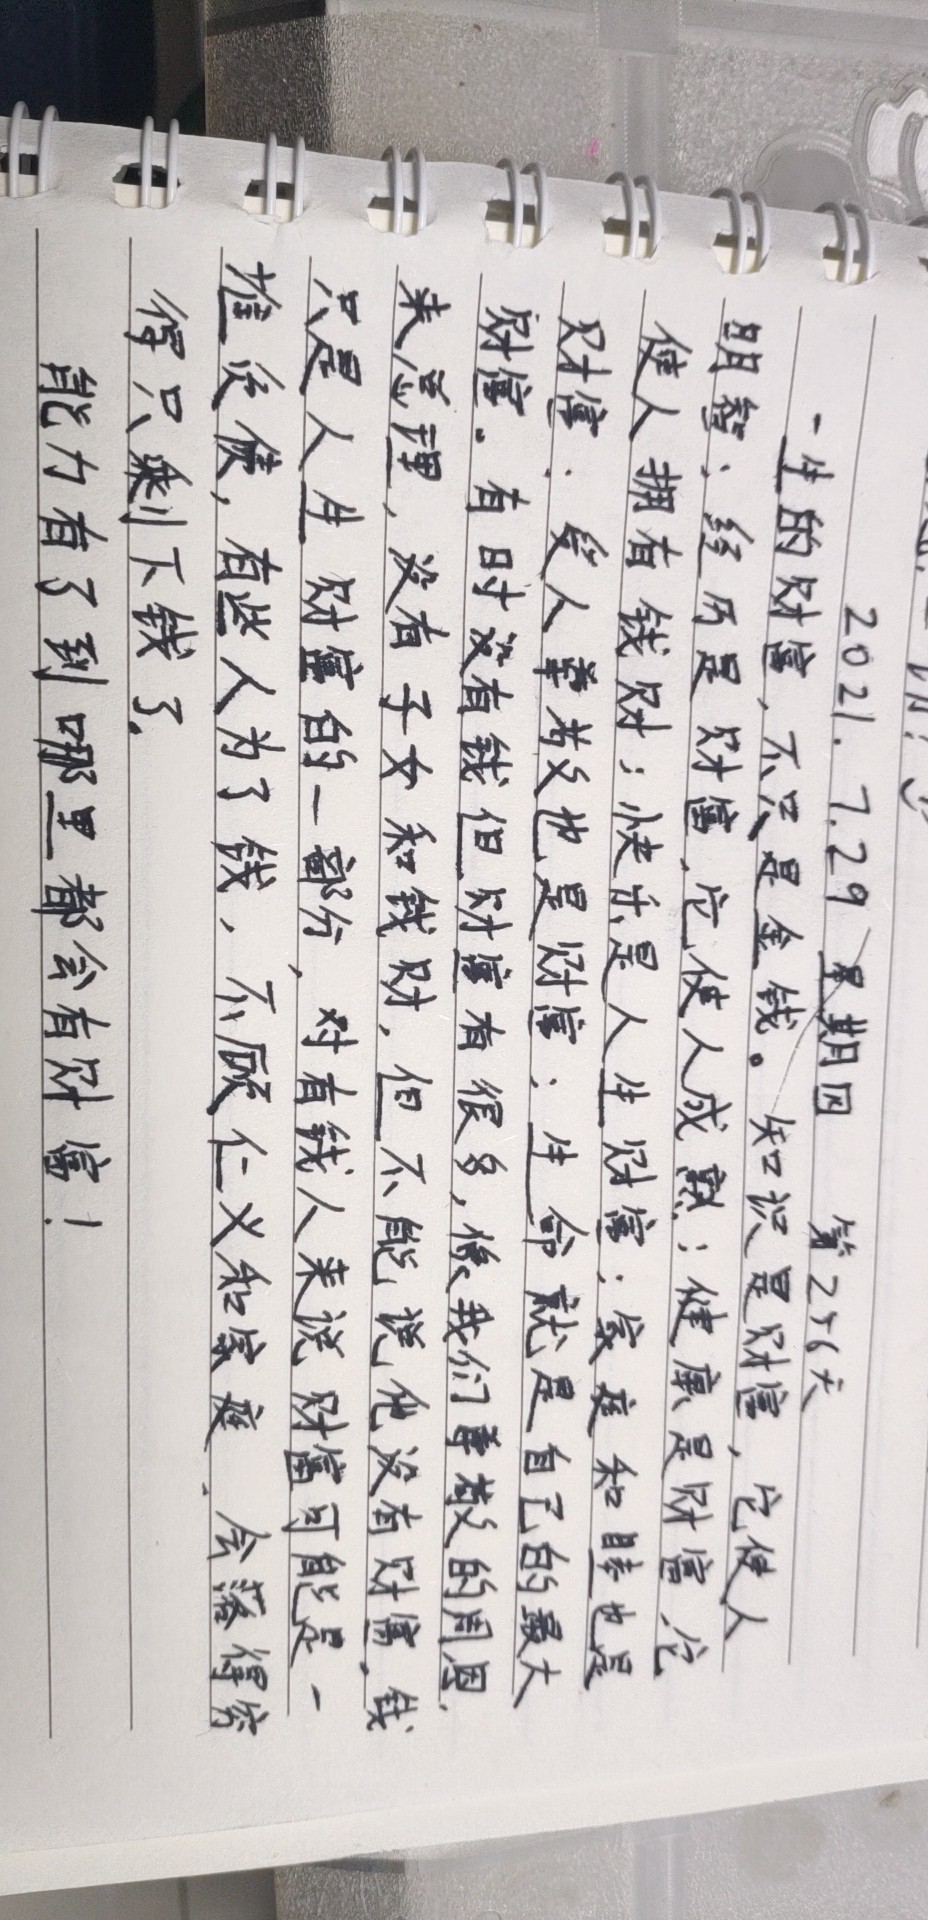 2021.7.29 星期四 第256天
一生的财富,不只是金钱。知识是财富,它使人
明智;经历是财富,它使人成熟;健康是财富,它
使人拥有钱财;快乐是人生财富;家庭和睦也是
财富;受人尊敬也是财富;生命就是自己的最大
财富。有时没有钱但财富有很多,像我们尊敬的周恩
来总理,没有子女和钱财,但不能说他没有财富,钱
只是人生财富的一部分,对有钱人来说财富可能是一
堆负债,有些人为了钱,不顾仁义和家庭,会落得穷
得只剩下钱了.
能力有了到哪里都会有财富!